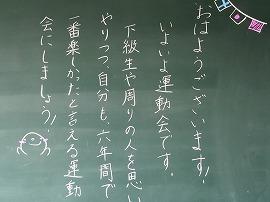 おはようございます!
いよいよ運動会です。
下級生や周りの人を思い
やりつつ、自分も、六年間で
一番楽しかったと言える運動
会にしましょう!